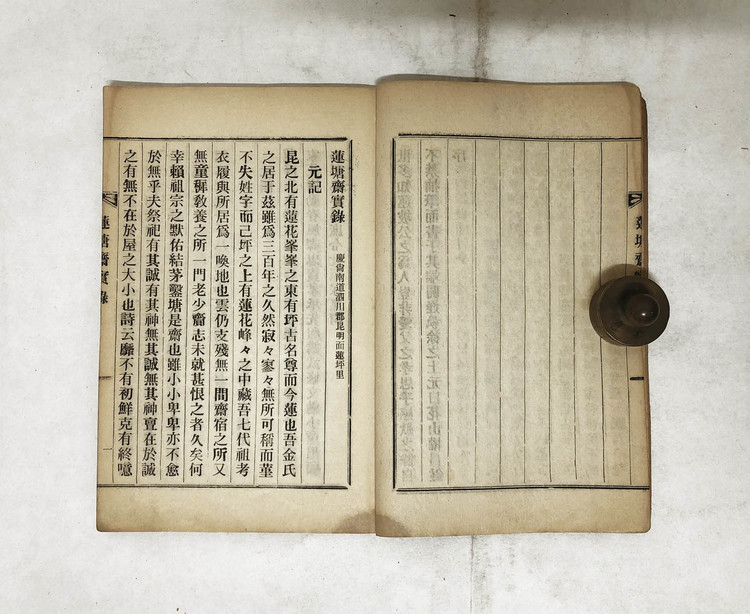 蓮塘齋
蓮塘齋實錄
慶尙南道泗川郡昆明面蓮坪里
元記
昆之北有蓮花峯峯之東有坪古名尊而今蓮也吾金氏
之居于玆雖爲三百年之久然寂々寥々無所可稱而菫
不失姓字而己坪之上有蓮花峰々之中藏吾七代祖考
衣履與所居爲一喚地也雲仍支殘無一間齋宿之所又
無童穉敎養之所一門老少齎志未就甚恨之者久矣何
幸賴祖宗之默佑結茅鑿塘是齋也雖小小卑卑亦不愈
於無乎夫祭祀有其誠有其神無其誠無其神亶在於誠
之有無不在於屋之大小也詩云靡不有初鮮克有終噫
蓮塘齋實錄
一